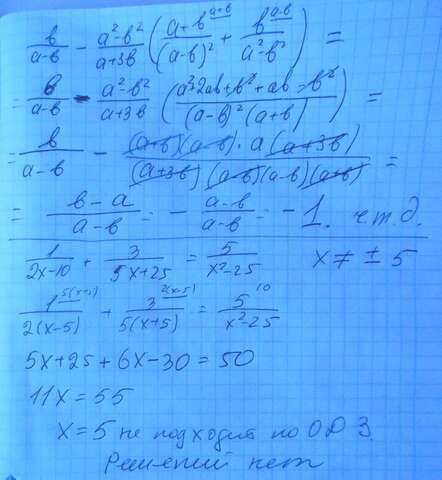 b/(a-b) - (a²-b²)/(a+3b) ((a+b^(a+b))/(a-b)² + b^(a-b)/(a²-b²)) =
= b/(a-b) - (a²-b²)/(a+3b) ((a²+2ab+b²+ab-b²)/((a-b)²(a+b))) =
= b/(a-b) - ((a+b)(a-b)·a(a+3b))/((a+3b)(a-b)(a-b)(a+b)) =
= (b-a)/(a-b) = - (a-b)/(a-b) = -1. ч.т.д.
1/(2x-10) + 3/(5x+25) = 5/(x²-25) x≠±5
1^(5(x+5))/(2(x-5)) + 3^(2(x-5))/(5(x+5)) = 5^10/(x²-25)
5x+25+6x-30=50
11x=55
x=5 не подходит по ОДЗ.
Решений нет